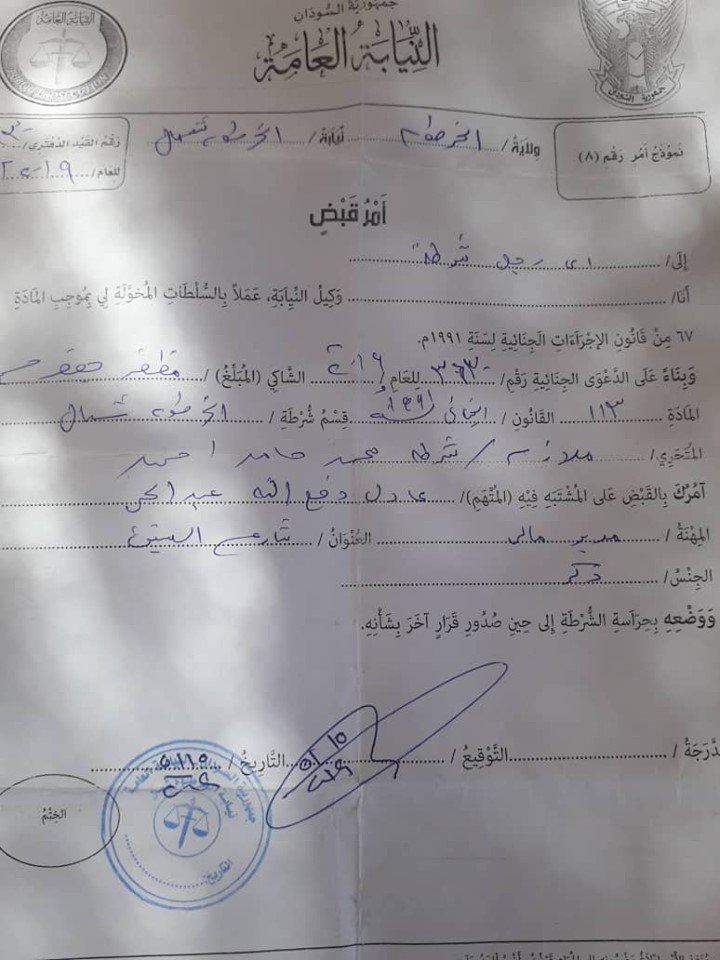 جمهورية السودان
النيابة العامة
جمهورية السودان
نَمُوذَجُ أَمْر رَقَم (٨)
ولاية/ الخرطوم نيابة/ الخرطوم شمال
رقم القيد الدفتري/
للعام/ ٢٠١٩
أَمْرُ قَبْضٍ
إلى/ اى رجل شرطة
أنا/ وَكِيلُ النِّيَابَةِ، عَمَلاً بِالسُّلْطَاتِ المُخَوَّلَةِ لِي بِمُوجِبِ المَادَةِ
٦٧ مِنْ قَانُونِ الإِجْرَاءَاتِ الجِنَائِيَةِ لِسَنَةِ ١٩٩١م.
وَبِنَاءً عَلَى الدَّعْوَى الجِنَائِيَةِ رَقَمِ/ ٣٦٣٠ للعام/ الشَّاكِي (المُبَلِّغُ)/
المَادَةِ ١١٣ القَانُونِ/ الجنائى ١٩٩١ قِسْمُ شُرْطَةِ/ الخرطوم شمال
المُتَحَرِي/ ملازم/ شرطة محمد حامد احمد
آمُرُكَ بِالقَبْضِ عَلَى المُشْتَبَهِ فِيْهِ (المُتَّهَمِ)/ عادل دفع الله عبد
المِهْنَةُ/ مدير مالى العُنْوَانُ/ شارع الستين
الجِنْسُ/ ذكر
وَوَضْعِهِ بِحِرَاسَةِ الشُّرْطَةِ إِلى حِينِ صُدُورِ قَرَارٍ آخَرَ بِشَأْنِهِ.
الدَّرَجَةُ/ التَّوْقِيعُ/ التَّارِيخُ/
الخِتْمُ
التاريخ: